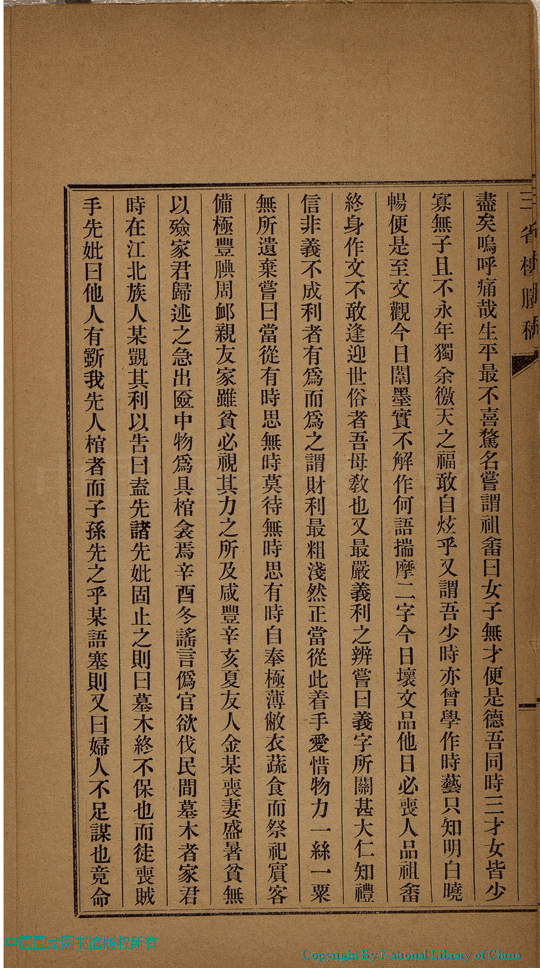 三省樓賸稿
盡矣嗚呼痛哉生平最不喜騖名嘗謂祖畬曰女子無才便是德吾同時三才女皆少
寡無子且不永年獨余徼天之福敢自炫乎又謂吾少時亦曾學作時藝只知明白曉
暢便是至文觀今日闈墨實不解作何語揣摩二字今日壞文品他日必喪人品祖畬
終身作文不敢逢迎世俗者吾母敎也又最嚴義利之辨嘗曰義字所關甚大仁知禮
信非義不成利者有爲而爲之謂財利最粗淺然正當從此着手愛惜物力一絲一粟
無所遺棄嘗曰當從有時思無時莫待無時思有時自奉極薄敝衣蔬食而祭祀賓客
備極豐腆周䘏親友家雖貧必視其力之所及咸豐辛亥夏友人金某喪妻盛暑貧無
以殮家君歸述之急出匳中物爲具棺衾焉辛酉冬謠言僞官欲伐民間墓木者家君
時在江北族人某覬其利以吿曰盍先諸先妣固止之則曰墓木終不保也而徒喪賊
手先妣曰他人有斵我先人棺者而子孫先之乎某語塞則又曰婦人不足謀也竟命
中国国家图书馆版权所有
Copyright By National Library of China